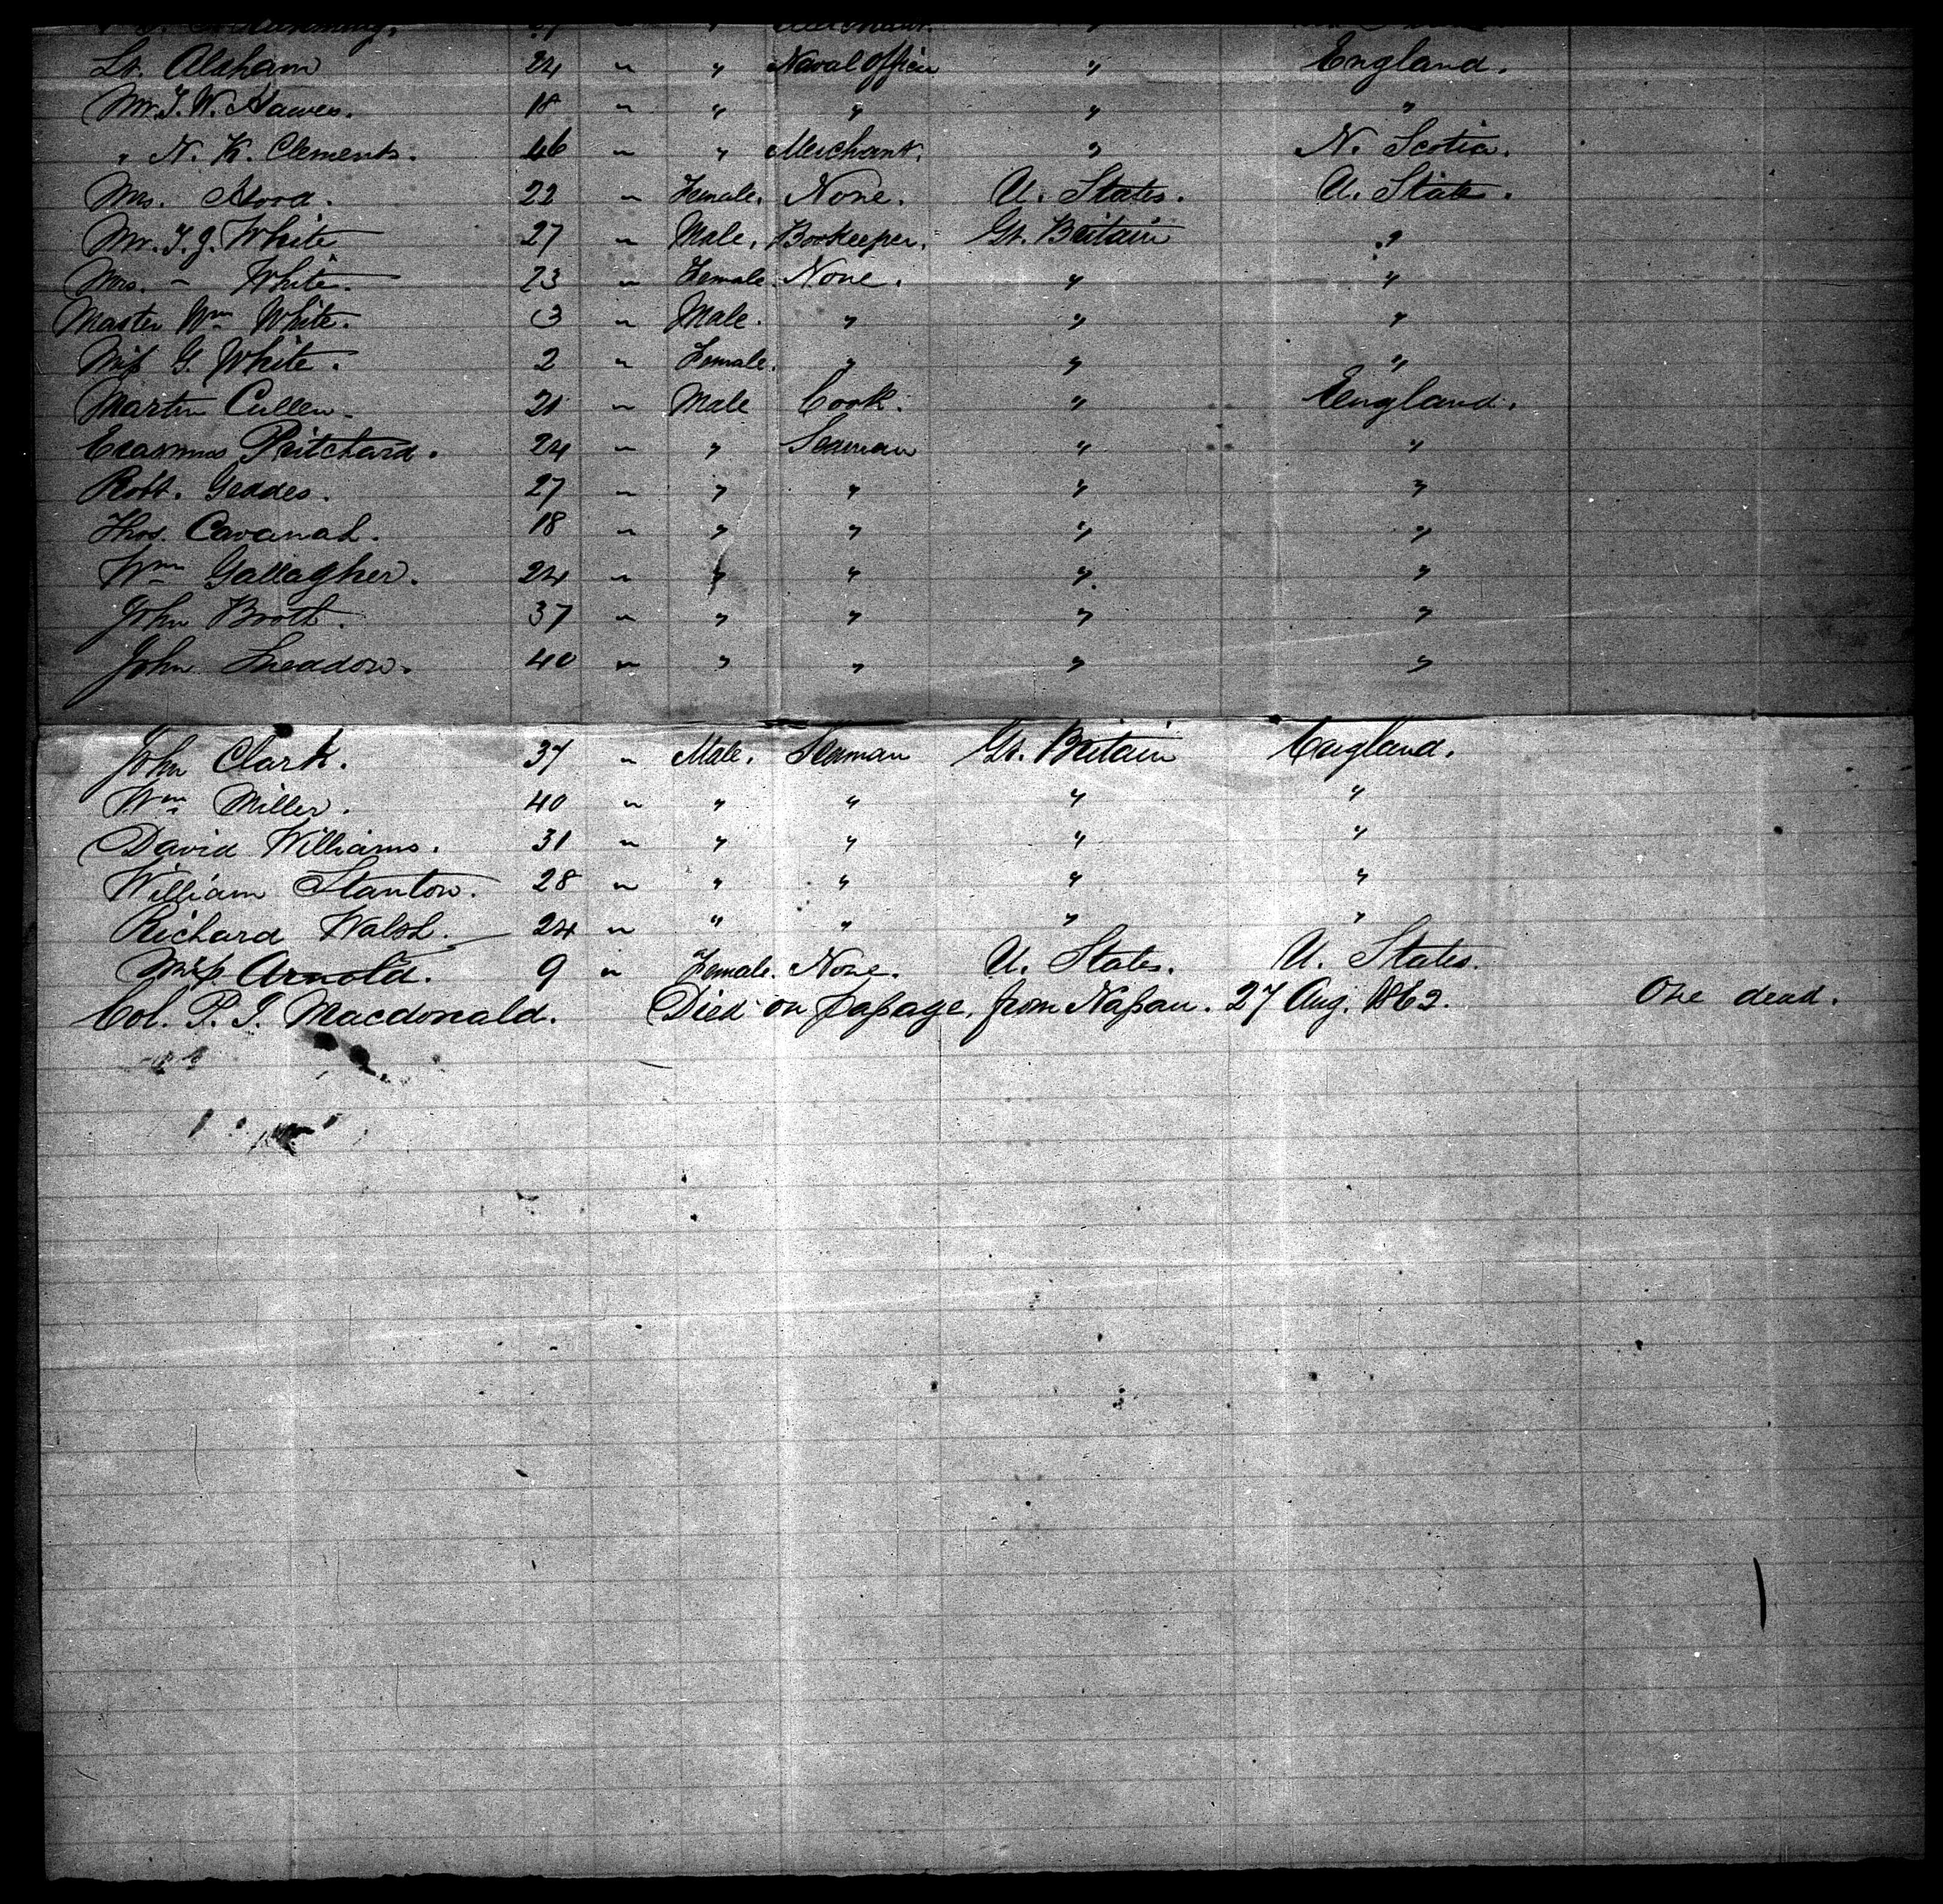 Lt. Aldham 24 " " Naval Officer " England.
Mr. T. W. Hawes. 18 " " " " "
" N. K. Clements. 46 " " Merchant. " N. Scotia.
Mrs. Hood. 22 " Female. None. U. States. U. State.
Mr. T. J. White 27 " Male, Bookeeper. Gt. Britain "
Mrs. - White. 23 " Female None. " "
Master Wm White. 3 " Male. " " "
Miss G. White. 2 " Female. " " "
Martin Cullen. 21 " Male Cook. " England.
Erasmus Pritchard. 24 " " Seaman " "
Robt. Geddes. 27 " " " " "
Thos. Cavanah. 18 " " " " "
Wm Gallagher. 24 " " " " "
John Booth. 37 " " " " "
John Sneadon. 40 " " " " "
John Clark. 37 " Male. Seaman Gt. Britain England.
Wm Miller. 40 " " " " "
David Williams. 31 " " " " "
William Stanton. 28 " " " " "
Richard Walsh. 24 " " " " "
Miss Arnold. 9 " Female. None. U. States. U. States.
Col. P. J. Macdonald. Died on passage, from Nassau. 27 Aug. 1862. One dead.